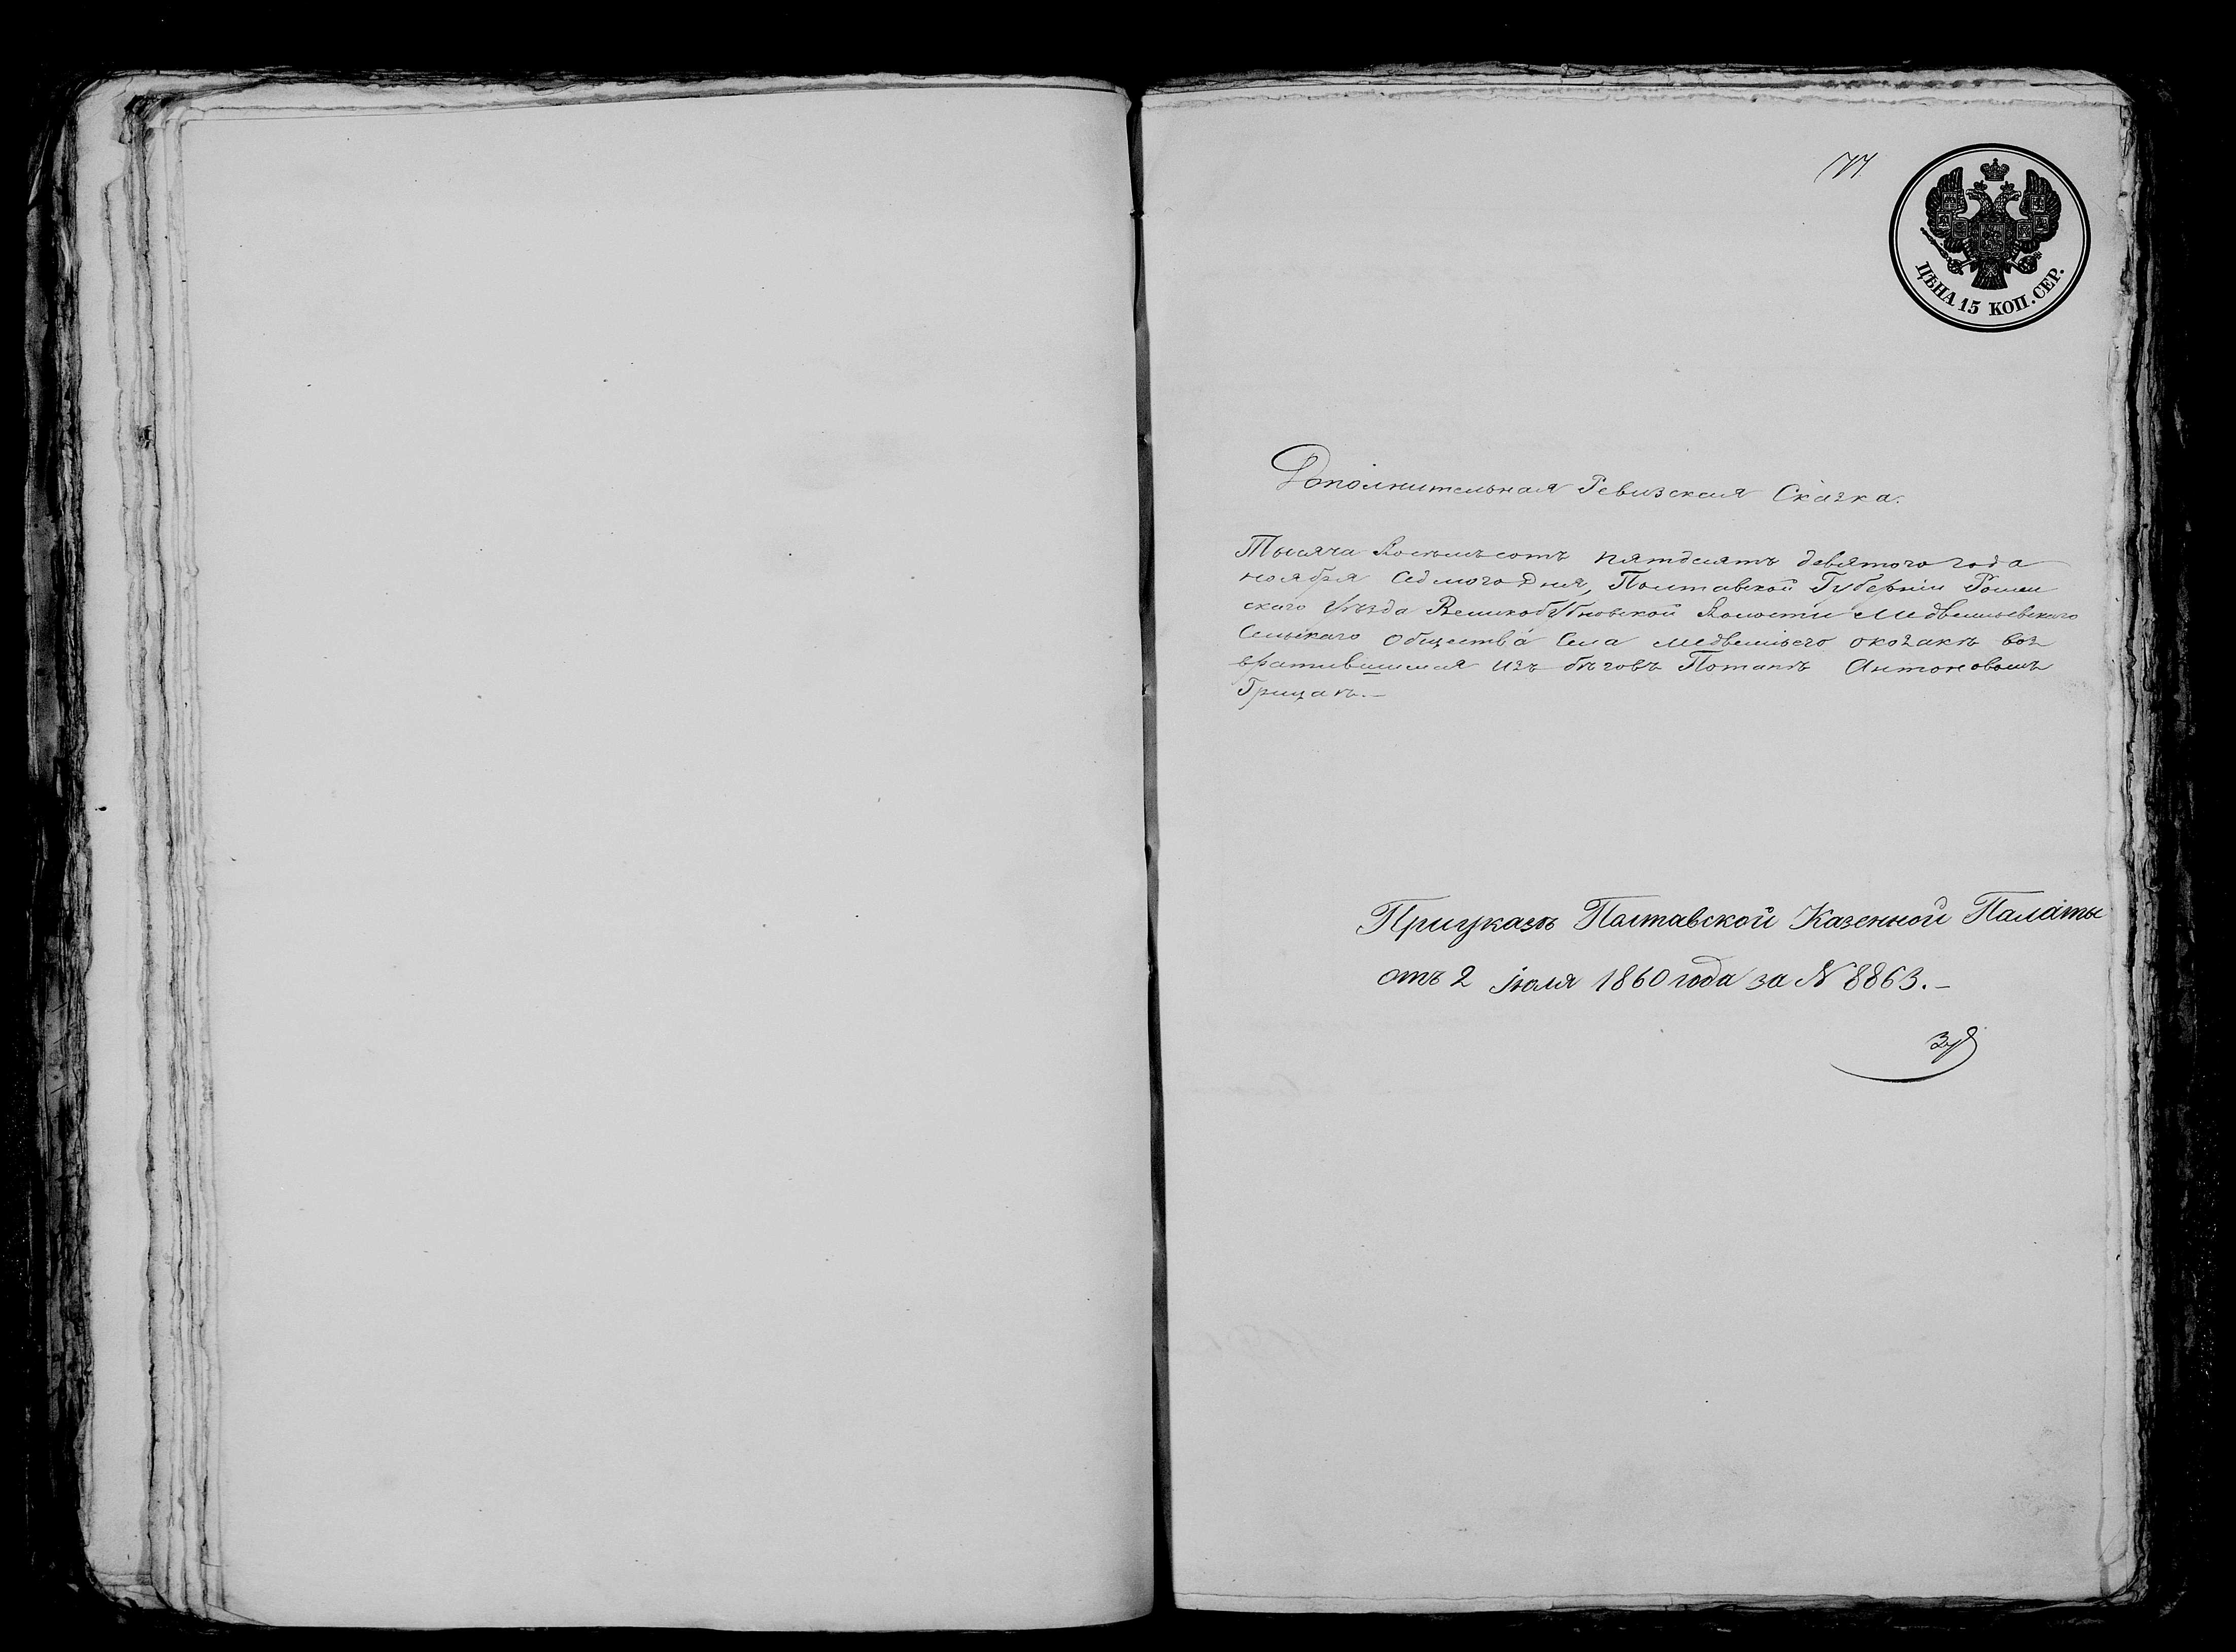 ЦѢНА 15 КОП. СЕР.
Дополнительная Ревизская Сказка.
Тысяча восемьсотъ пятдесятъ девятого года
ноября седмого дня, Полтавской Губерніи Ромен
скаго Уѣзда Великобубновской Волости Медвежьевскаго
Сельскаго общества Села Медвежьего оказакѣ воз
вратившимся изъ бѣговъ Потапѣ Антоновомъ
Грицакѣ.—
Приуказѣ Полтавской Казенной Палаты
отъ 2 іюля 1860 года за № 8863.—